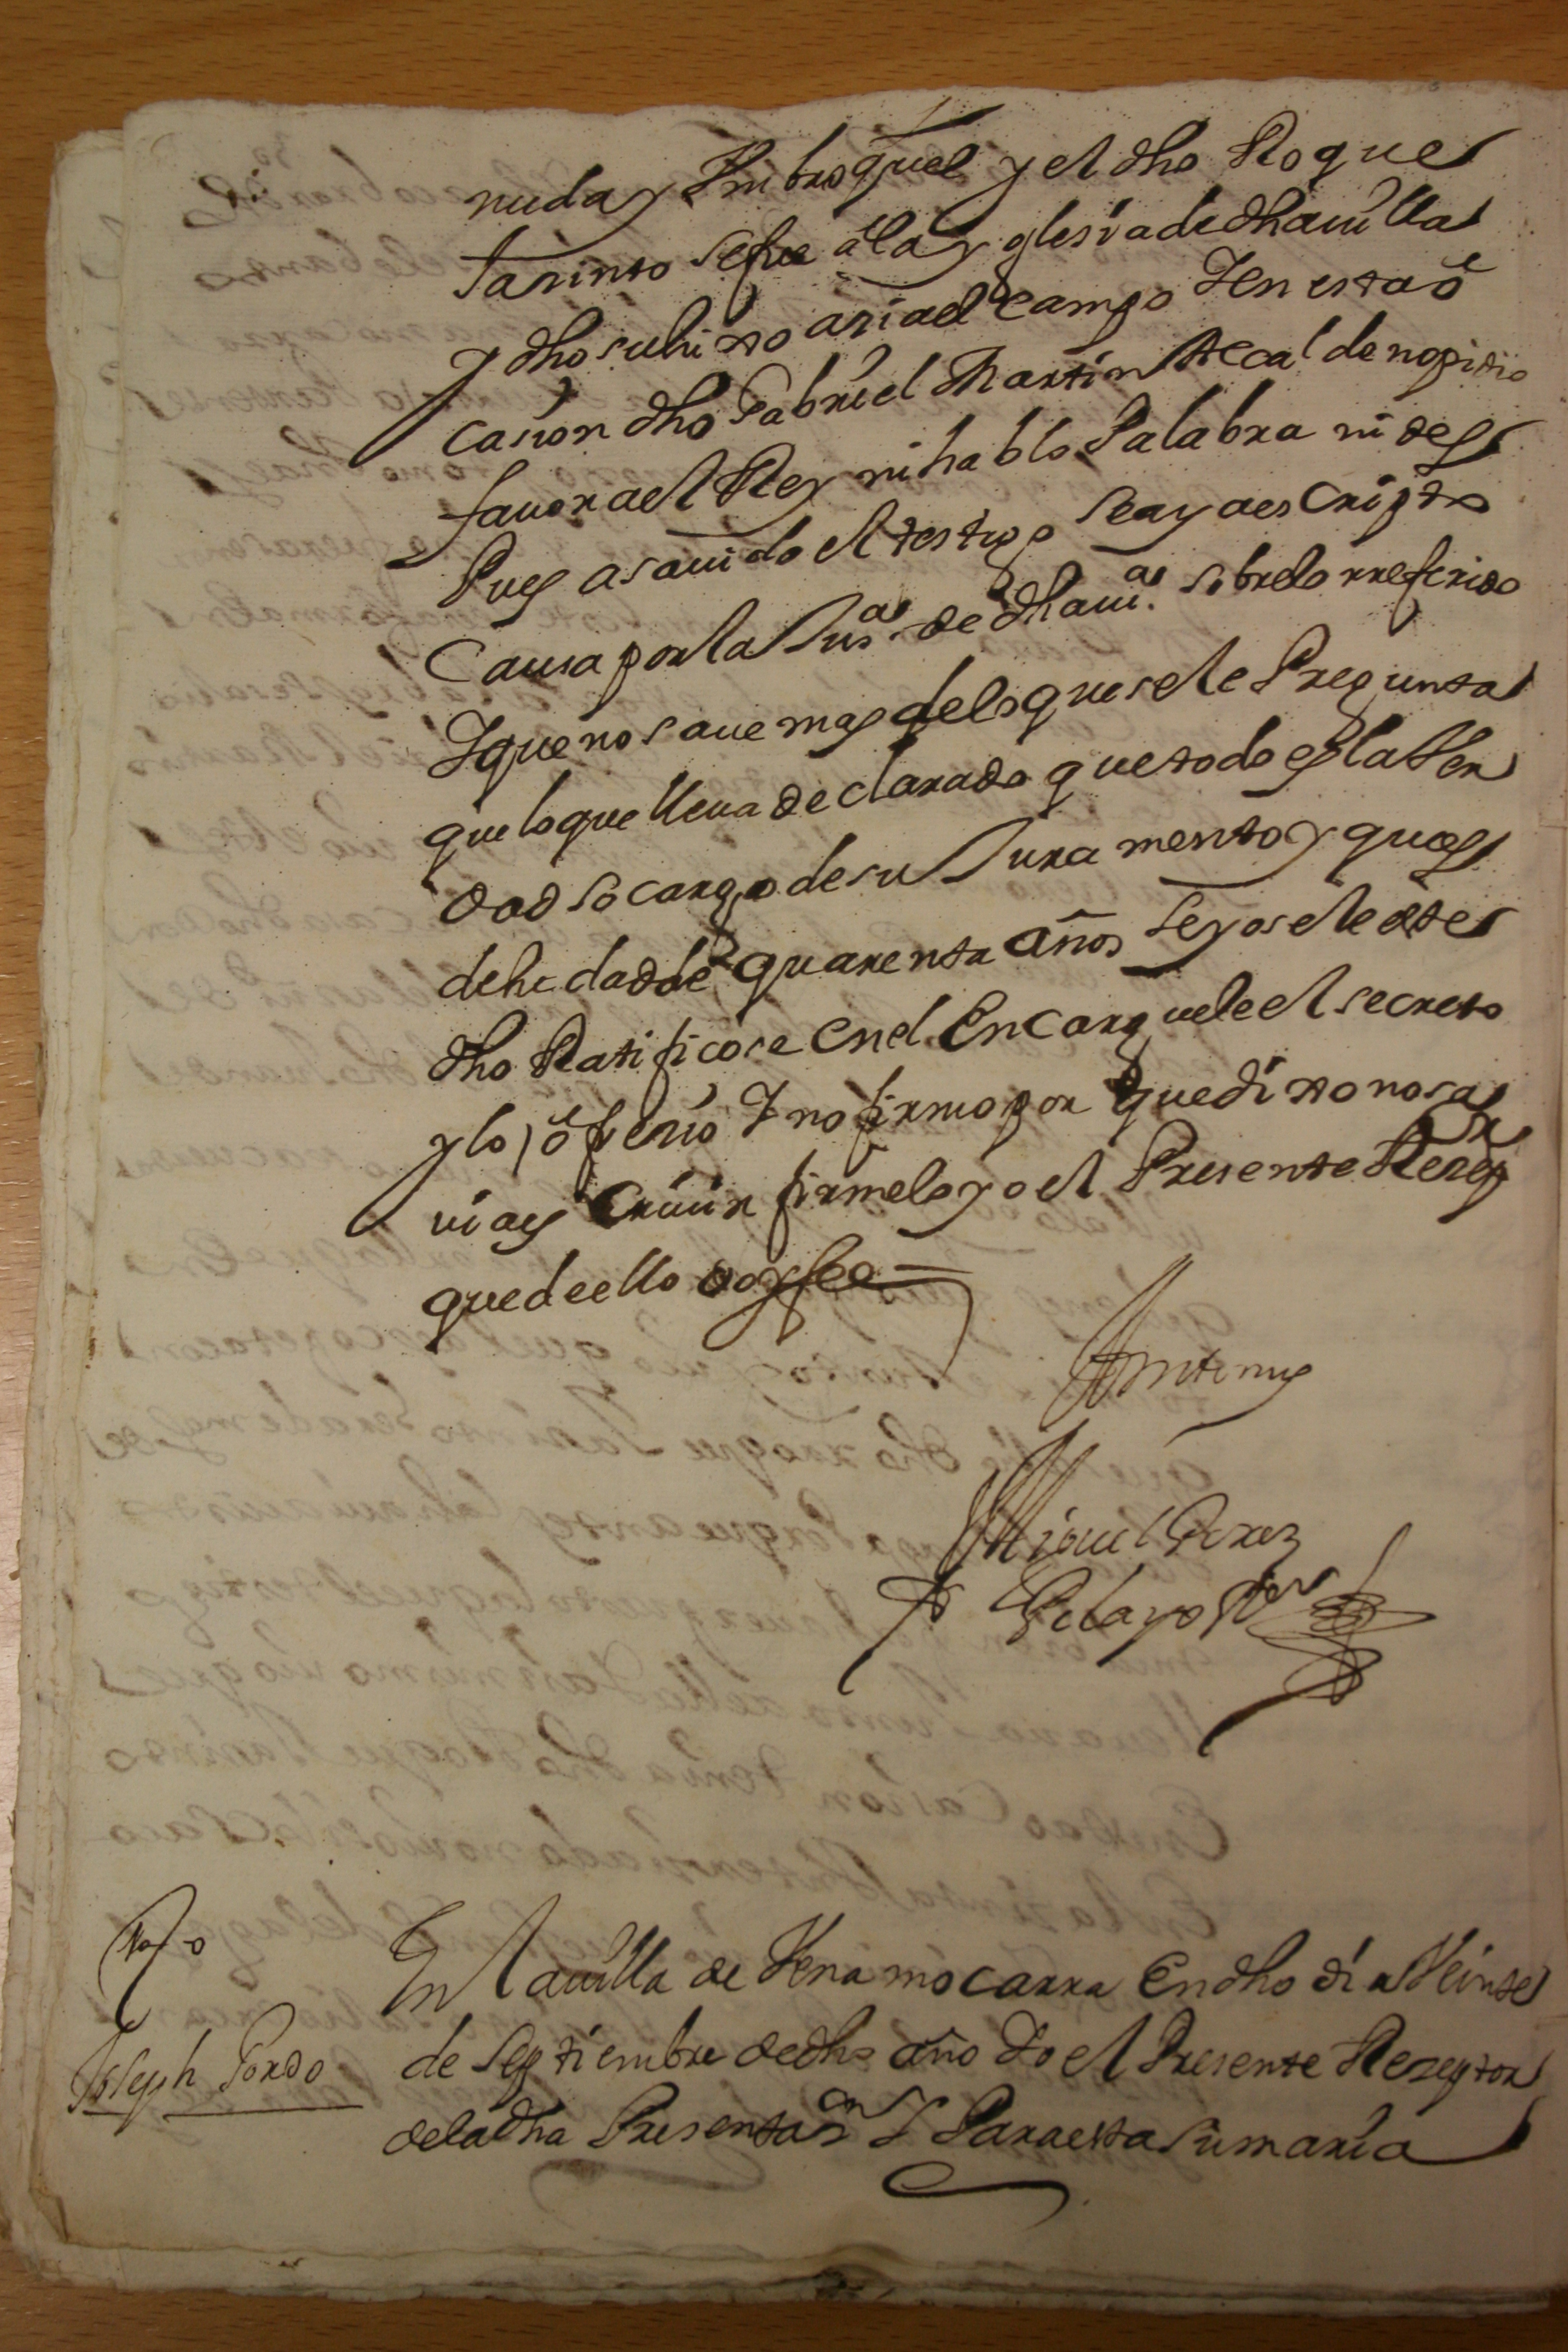 nuda y Un broquel y el dho Roque
Jasinto se fue a la yglesia de dha uilla
y dho su hixo asia el campo Y en esta o
casion dho Gabriel Martin Alcalde no pidio
fauor a el Rey ni hablo Palabra ni des
Pues a sauido el testigo se aya escripto
Causa por la Jusª. de dha uiª. sobre lo rreferido
Y que no saue mas de lo que se le Pregunta
que lo que lleua declarado que todo es la Ver
dad so cargo de su Juramento y que es
de hedad de quarenta años Leyosele este
dho Ratificose en el Encarguele el secreto
y lo ofrecio Y no firmo por que dixo no sa
ui a escriuir firmelo yo el Presente Rezepᵒʳ
que de ello doy fee =
Antemy
Miguel Perez
Pelayo Rᵒʳ
tᵍᵒ
Joseph Gordo
En la uilla de Venamocarra En dho dia Veinte
de Septiembre de dho año Yo el Presente Rezeptor
de la dha Presentaᵒⁿ Y Para esta sumaria